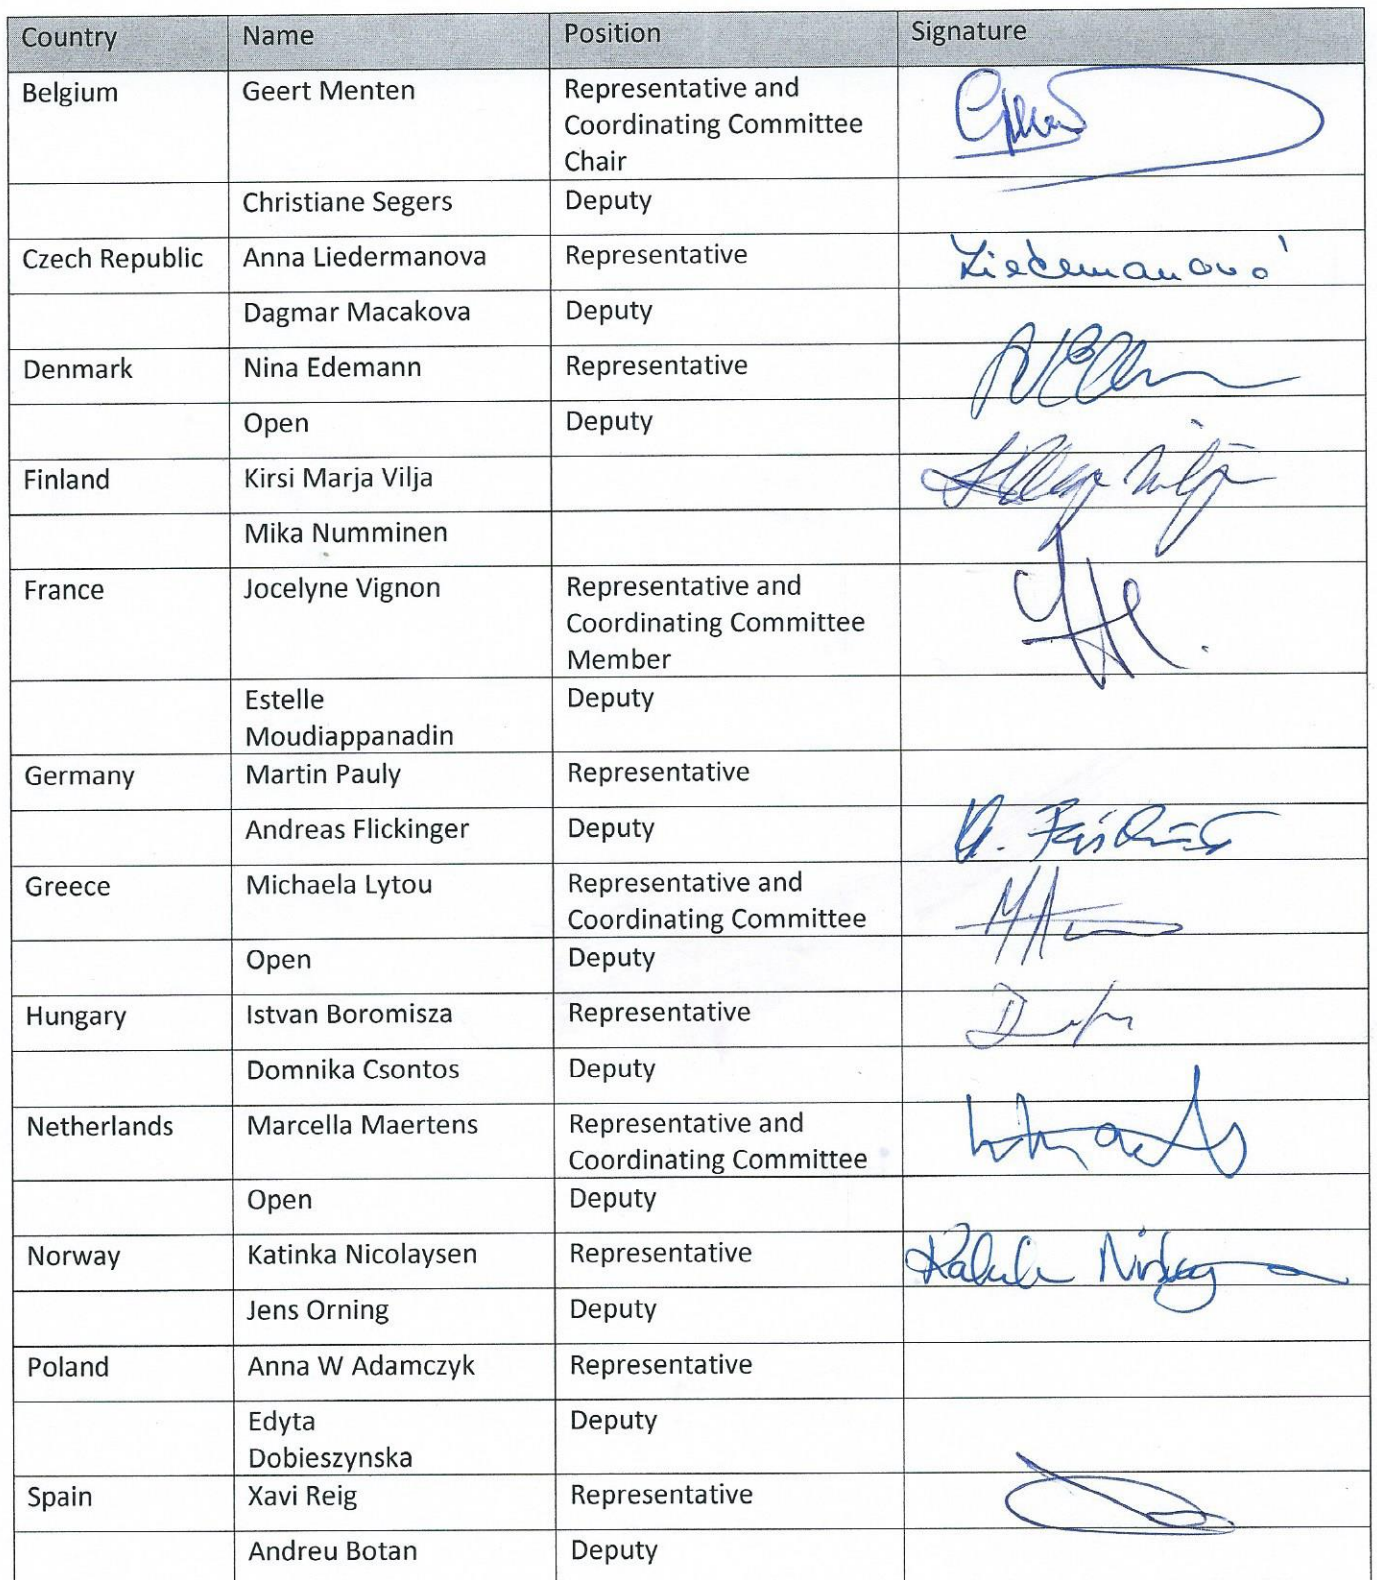 Country Name Position Signature
Belgium Geert Menten Representative and
Coordinating Committee
Chair
Christiane Segers Deputy
Czech Republic Anna Liedermanova Representative Liedermanová
Dagmar Macakova Deputy
Denmark Nina Edemann Representative
Open Deputy
Finland Kirsi Marja Vilja
Mika Numminen
France Jocelyne Vignon Representative and
Coordinating Committee
Member
Estelle Deputy
Moudiappanadin
Germany Martin Pauly Representative
Andreas Flickinger Deputy
Greece Michaela Lytou Representative and
Coordinating Committee
Open Deputy
Hungary Istvan Boromisza Representative
Domnika Csontos Deputy
Netherlands Marcella Maertens Representative and
Coordinating Committee
Open Deputy
Norway Katinka Nicolaysen Representative
Jens Orning Deputy
Poland Anna W Adamczyk Representative
Edyta Deputy
Dobieszynska
Spain Xavi Reig Representative
Andreu Botan Deputy